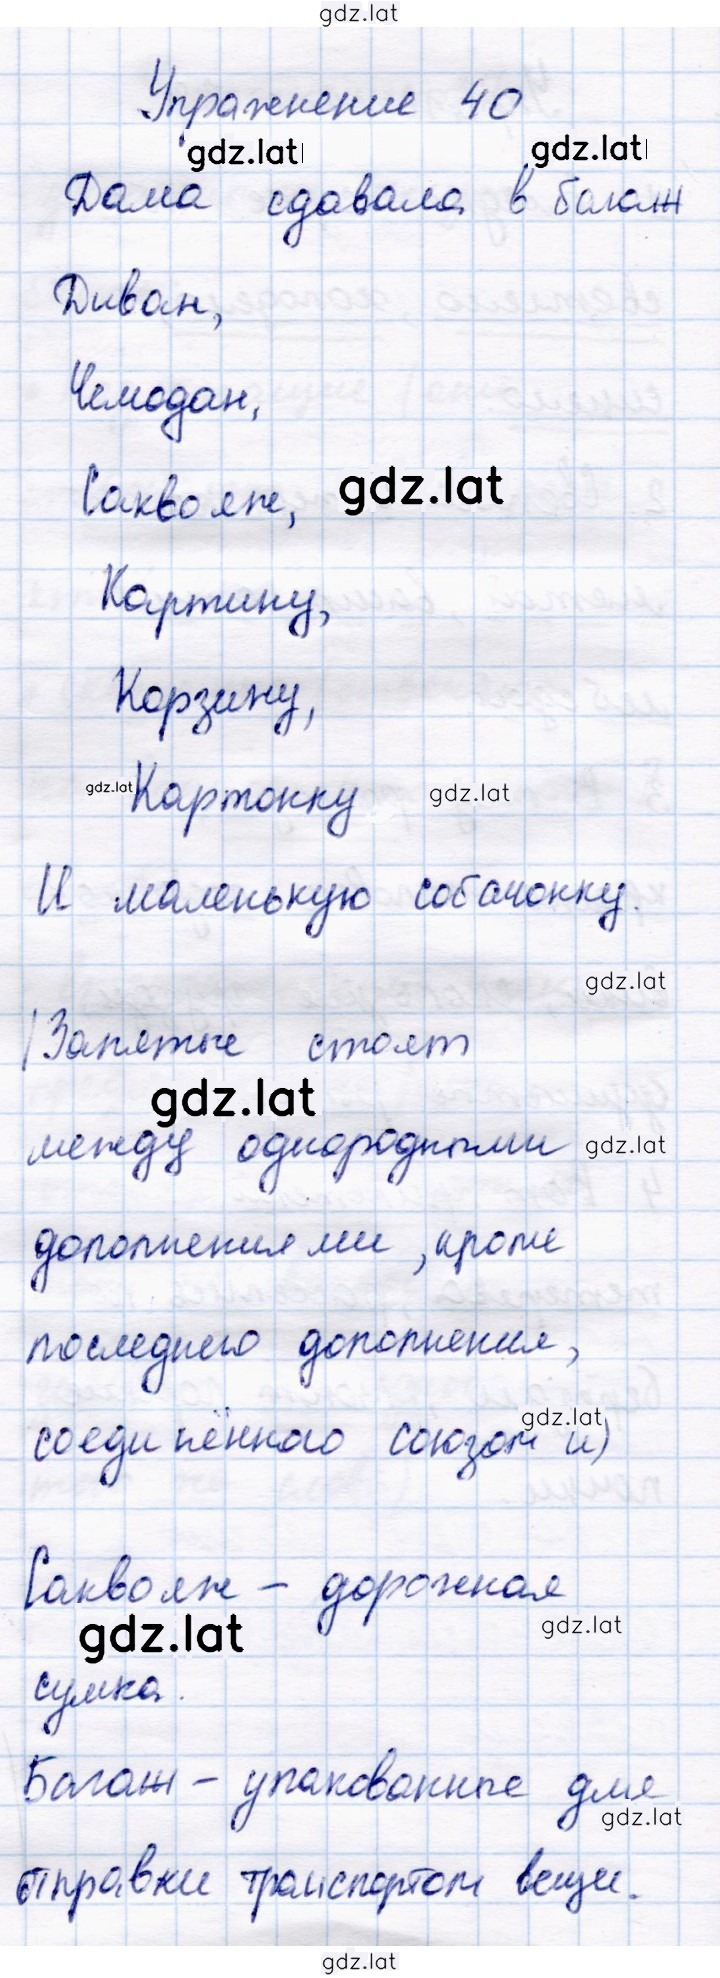 gdz.lat
Упражнение 40
gdz.lat gdz.lat
Дама сдавала в багаж
Диван,
Чемодан,
Саквояж, gdz.lat
Картину,
Корзину,
gdz.lat Картонку gdz.lat
И маленькую собачонку.
gdz.lat
(Запятые стоят
gdz.lat
между однородными gdz.lat
дополнениями, кроме
последнего дополнения,
gdz.lat
соединённого союзом и)
Саквояж – дорожная
gdz.lat gdz.lat
сумка.
Багаж – упакованные для
gdz.lat
отправки транспортом вещи.
gdz.lat